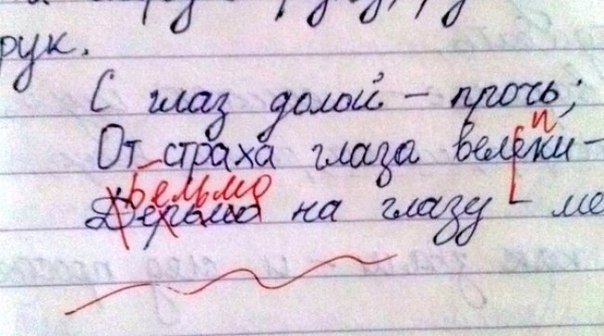 рук.
С глаз долой – прочь;
п
От страха глаза велики –
Бельмо
Дерьмо на глазу – ме